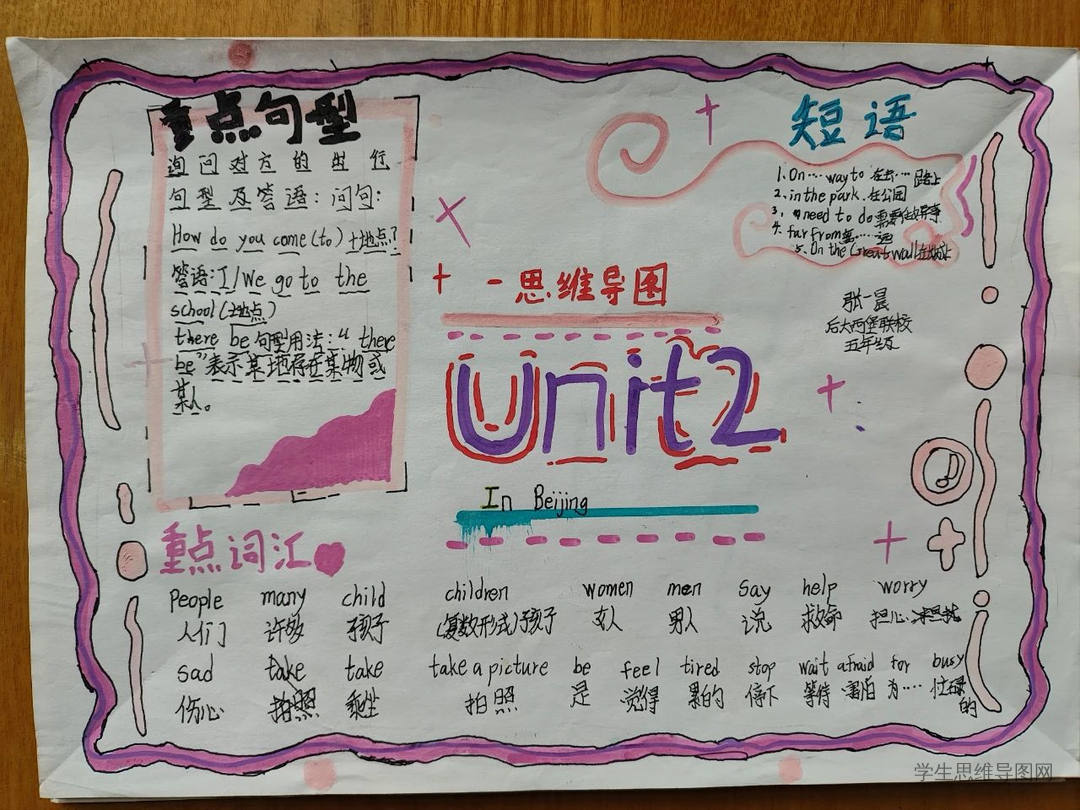 重点句型
询问对方的出行
句型及答语：问句：
How do you come (to)+地点？
答语：I/We go to the
school(地点)
there be 句型用法："there
be"表示某地存在某物或
某人。
短语
1. On····way to 在去····路上
2. in the park. 在公园
3. need to do 需要做某事
4. far from 离····远
5. On the Great wall 在长城
张一晨
后大西堡联校
五年级
一思维导图
Unit2
In Beijing
重点词汇
People many child children women men Say help worry
人们 许多 孩子 (复数形式)孩子 女人 男人 说 救命 担心
sad take take take a picture be feel tired stop wait afraid for busy
伤心 拍照 乘坐 拍照 是 觉得 累的 停下 等待 害怕 为···· 忙碌
的
学生思维导图网